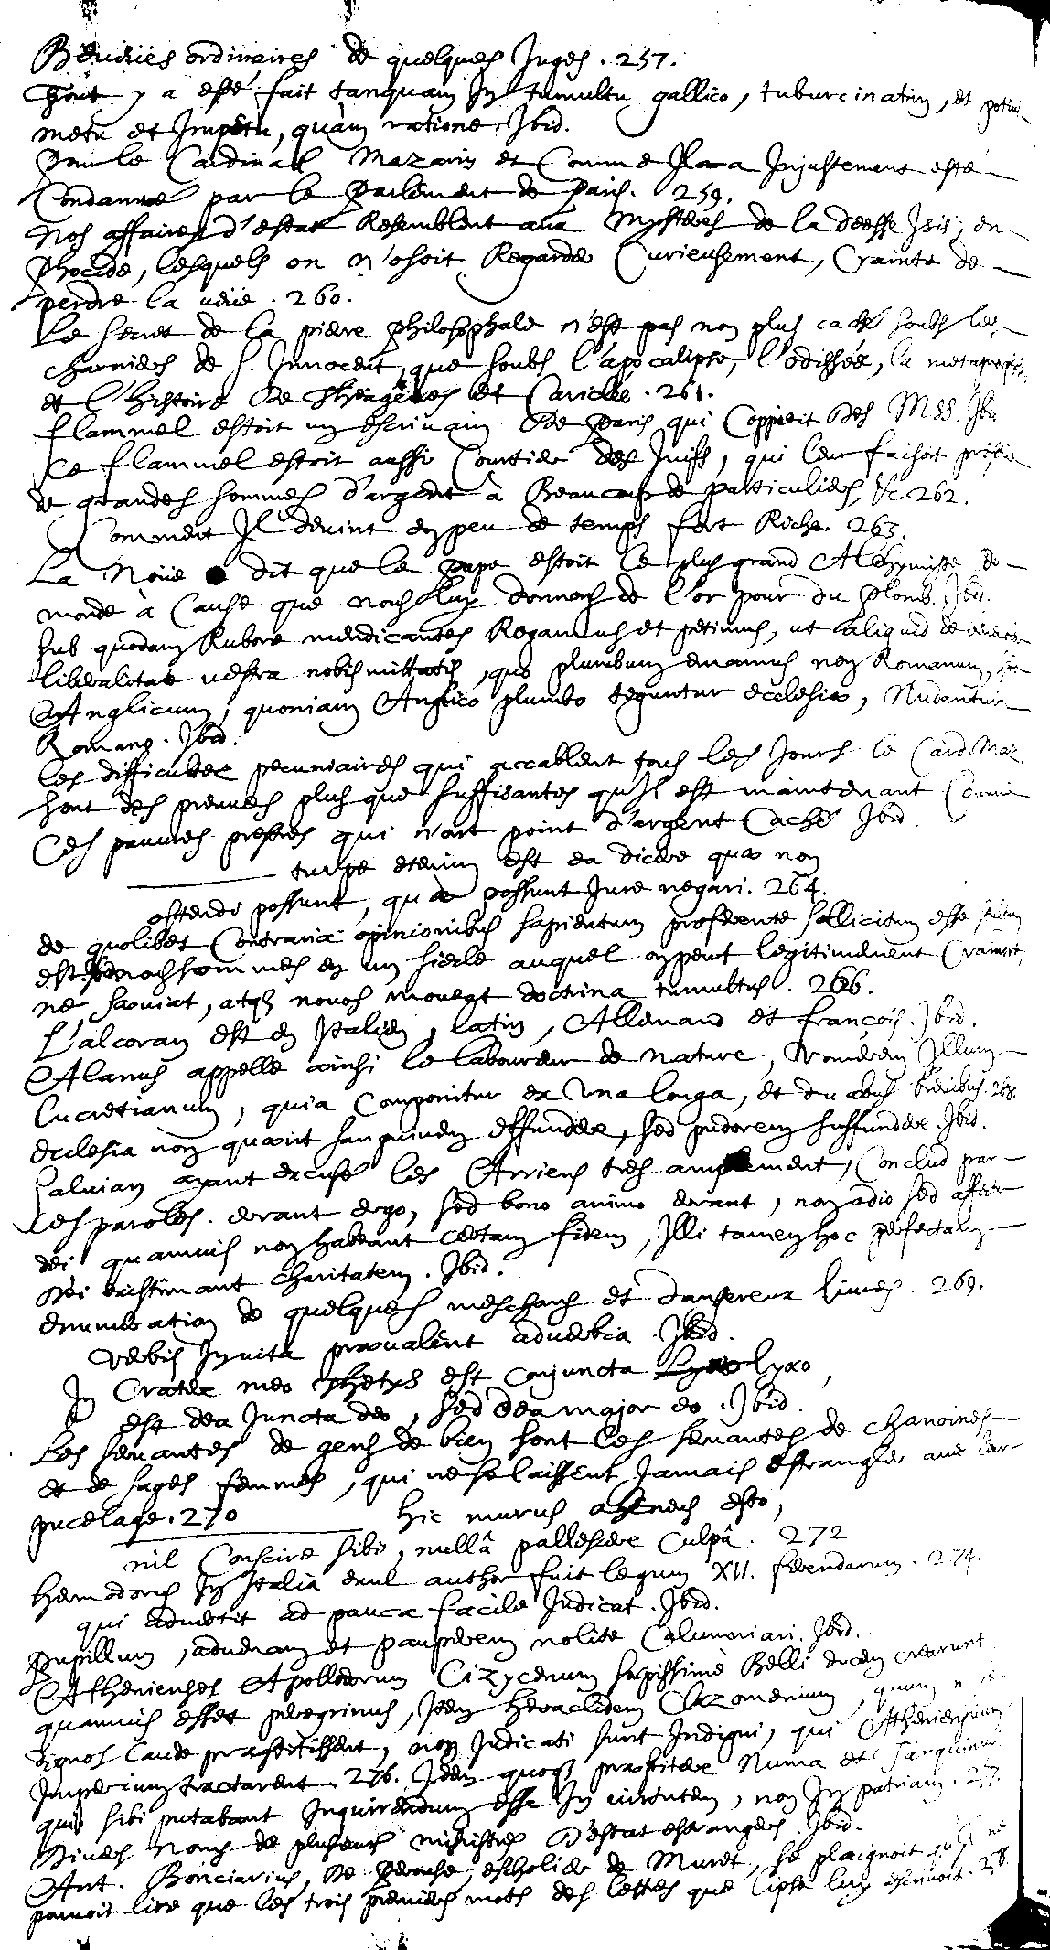 Beueües ordinaires de quelques Juges. 257.
Tout y a esté fait tanquam Jn tumultu gallico, tuburcinatim, et potius
metu et Jmpetu, quàm ratione. Jbid.
Que le Cardinal Mazarin et Comme Jl a Jnjustement esté
Condanné par le Parlement de Paris. 259.
Nos affaires d'estat Resemblent aux Mysteres de la deesse Jsis, en
Phocide, lesquels on n'osoit Regarder Curieusement, Crainte de
perdre la veüe. 260.
Le secret de la pierre philosophale n'est pas non plus caché soubs les
charniers de S. Jnnocent, que soubs l'apocalipse, l'odissée, la metamorphose
et l'histoire de Theagenes et Cariclée. 261.
flammel estoit un escriuain de Paris qui Coppioit des Mss. Jbid
Ce flammel estoit aussi Courtier des Juifs, qui leur faisoit prester
de grandes sommes d'argent à Beaucoup de particuliers, &c. 262.
Comment Jl deuint en peu de temps fort Riche. 263.
La Noüe dit que le pape estoit le plus grand Alchymiste du
monde à Cause que nous luy donnons de l'or pour du plomb. Jbid.
sub quodam Rubore mendicantes Rogamus et petimus, ut aliquid de
liberalitate vestra nobis mittatis, quo plumbum emamus non Romanum, sed
Anglicum, quoniam Anglico plumbo teguntur ecclesiae, Nudantur
Romano. Jbid.
les difficultez pecuniaires qui accablent tous les Jours le Card Maz
sont des preuues plus que suffisantes qu'Jl est maintenant Comme
Ces pauures prestres qui n'ont point d'argent Caché Jbid.
turpe etenim est ea dicere quae non
ostendi possunt, quae possunt Jure negari. 264.
de quolibet Contrariae opinionibus sapientum proferente sollicitum esse
est nous sommes en un siecle auquel on peut legitimement Craindre,
ne saeuiat, atqz nouos moueat doctrina tumultus. 266.
L'alcoran est en Jtalien, latin, Allemand et françois. Jbid.
Alanus appelle ainsi le laboureur de nature, Vomerem Jllum
Lucretianum, quia Componitur ex Una longa, et duabus breuibus. 268.
ecclesia non quaerit sanguinem effundere, sed pudorem suffundere. Jbid.
Saluian ayant excusé les Arriens tres amplement, Conclud par
Ces paroles. errant ergo, sed bono animo errant, non odio sed affectu
dei quamuis non habeant certam fidem, Jlli tamen hoc perfectam
Dei existimant charitatem. Jbid.
enumeration de quelques meschans et dangereux liures. 269.
verbis Jnuita praeualent aduerbia. Jbid.
Jn Cratere meo Thetys est Conjuncta Lyaeo,
est dea Juncta deo, sed dea major eo. Jbid.
Les seruantes de gens de bien sont les seruantes de chanoines
et de sages femmes, qui ne se laissent Jamais estrangler aux leur
pucelage. 270 hic murus aheneus esto,
nil Conscire sibi, nullâ pallescere Culpâ. 272
Hermodorus Jn Jtalia exul author fuit legum XII. ferendarum. 274.
qui aduertit ad pauca facile Judicat. Jbid.
Pupillum, aduenam et pauperem nolite Calumniari. Jbid.
Athenienses Apollodorum Cizycenum saepissimè Belli ducem crearunt
quamuis esset peregrinus, Jtem Heraclidem Clazomenium, quum
dignos laude praestitissent, non Judicati sunt Jndigni, qui Atheniensium
Jmperium tractarent. 276. Jtem quoqz praestitere Numa et Tarquinius
quos sibi putabant Jnquirendum esse Jn uirtutem, non Jn patriam. 277.
Diuers Noms de plusieurs ministres d'estat estrangers. Jbid.
Ant. Bonciarius, de Perouse, escholier de Muret, se plaignoit qu'Jl ne
pouuoit lire que les trois premiers mots des lettres que Lipse luy escriuoit. 278.